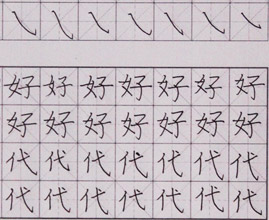 ㇂ ㇂ ㇂ ㇂ ㇂ ㇂ ㇂
好 好 好 好 好 好 好
好 好 好 好 好 好 好
代 代 代 代 代 代 代
代 代 代 代 代 代 代